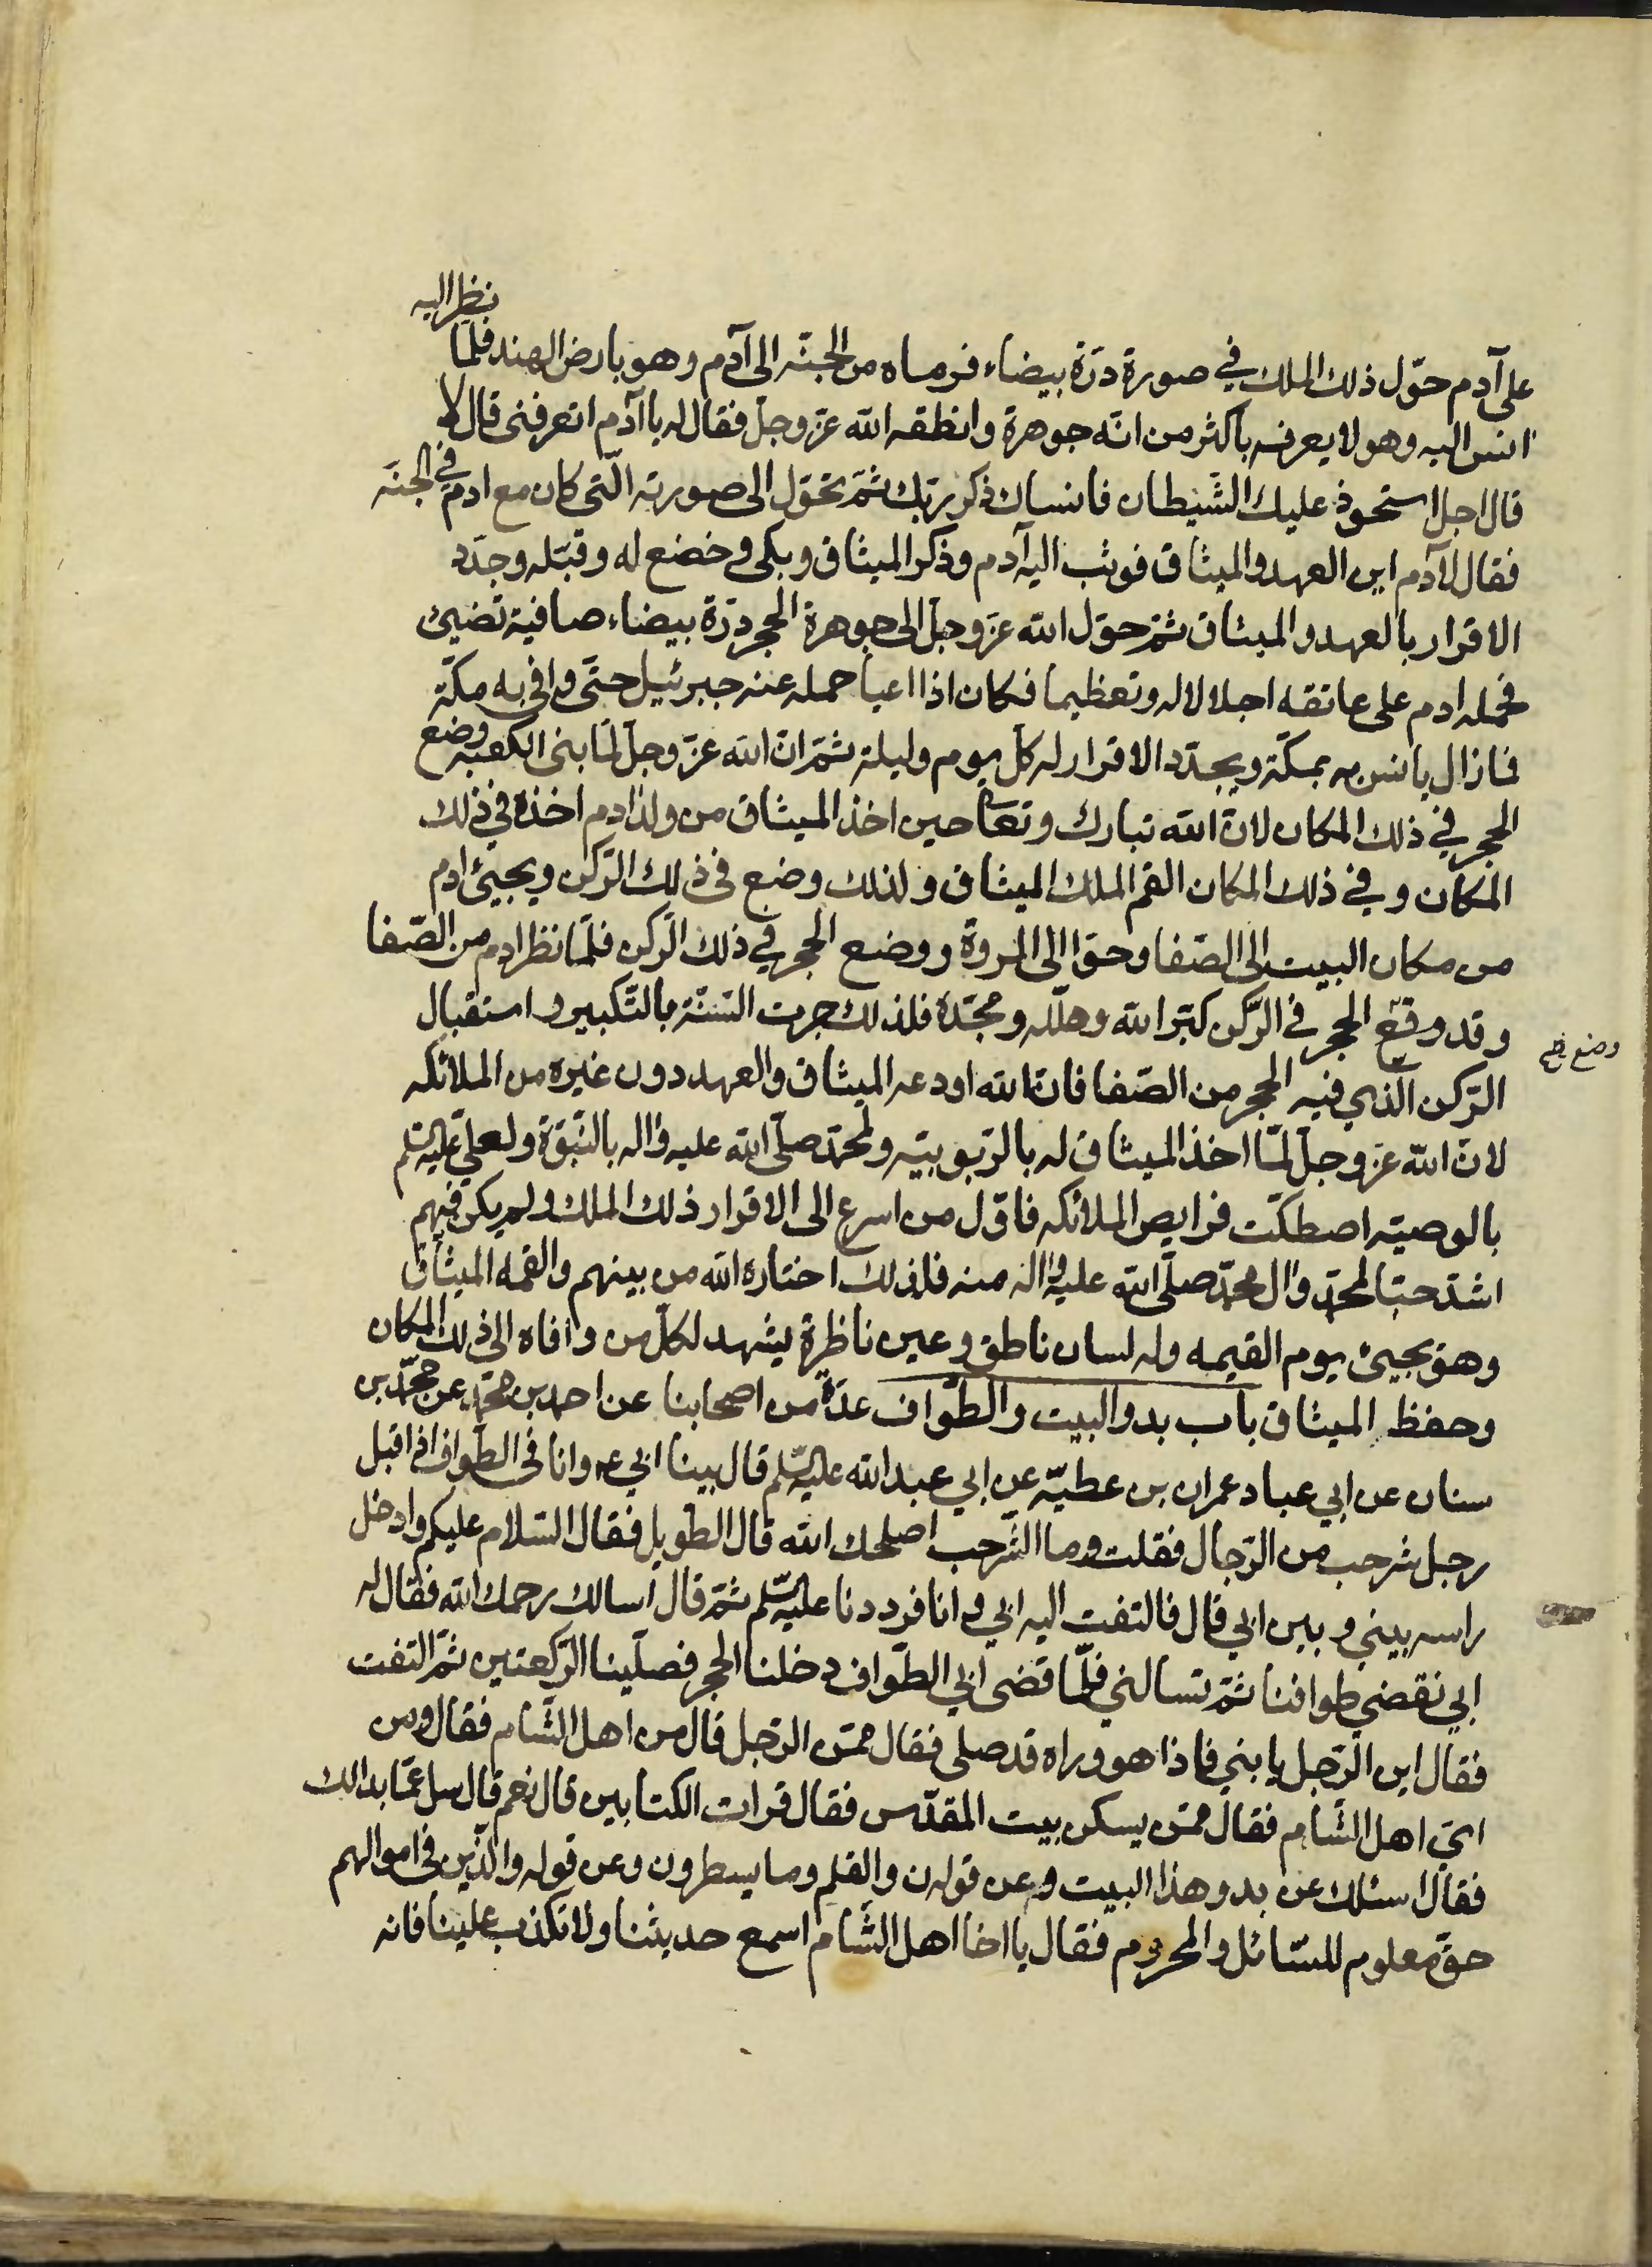 نظر اليه
على آدم حوّل ذلك الملك في صورة درّة بيضاء فرماه من الجنّة الى آدم وهو بارض الهند فلمّا
انس اليه وهو لا يعرفه باكثر من انّه جوهرة وانطقه الله عزّ وجلّ فقال له يا آدم اتعرفنى قال لا
قال اجل استحوذ عليك الشّيطان فانساك ذكر ربّك ثمّ تحوّل الى صورته الّتى كان مع ادم في الجنّة
فقال لآدم اين العهد والميثاق فوثب اليه آدم وذكر الميثاق وبكى وخضع له وقبّله وجدّد
الاقرار بالعهد والميثاق ثمّ حوّل الله عزّ وجلّ الى جوهرة الحجر درّة بيضاء صافية تضيئ
فحمله ادم على عاتقه اجلالا له وتعظيما فكان اذا اعيا حمله عنه جبرئيل حتّى وافى به مكّة
فما زال يانس به بمكّة ويجدّد الاقرار له كلّ يوم وليلة ثمّ انّ الله عزّ وجلّ لمّا بنى الكعبه وضع
الحجر في ذلك المكان لانّ الله تبارك وتعا حين اخذ الميثاق من ولد ادم اخذه في ذلك
المكان وفي ذلك المكان القم الملك الميثاق ولذلك وضع في ذلك الرّكن ويجيئ ادم
من مكان البيت الى الصّفا وحوّا الى المروة ووضع الحجر في ذلك الرّكن فلمّا نظر ادم من الصّفا
وقد وقع الحجر في الرّكن كبّر الله وهلّله ومجّده فلذلك جرت السّنّة بالتّكبير واستقبال
وضع
الرّكن الّذي فيه الحجر من الصّفا فانّ الله اودعه الميثاق والعهد دون غيره من الملائكه
لانّ الله عزّ وجلّ لمّا اخذ الميثاق له بالرّبوبيّه ولمحمّد صلّى الله عليه واله بالنّبوّة ولعلي عليه السّلم
بالوصيّه اصطكّت فرايص الملائكه فاوّل من اسرع الى الاقرار ذلك الملك ولم يكن فيهم
اشدّ حبّا لمحمّد وال محمّد صلّى الله عليه واله منه فلذلك اختاره الله من بينهم والقمه الميثاق
وهو يجيئ يوم القيمه وله لسان ناطق وعين ناظرة يشهد لكلّ من وافاه الى ذلك المكان
وحفظ الميثاق باب بدو البيت والطّواف عدّة من اصحابنا عن احمد بن محمّد عن محمّد بن
سنان عن ابي عباد عمران بن عطيّه عن ابي عبد الله عليه السّلم قال بينا ابي ع وانا في الطّواف اذ اقبل
رجل شرحب من الرّجال فقلت وما الشّرحب اصلحك الله قال الطويل فقال السّلام عليكم وادخل
راسه بيني وبين ابي قال فالتفت اليه ابي وانا فرددنا عليه السّلم ثمّ قال اسالك رحمك الله فقال له
ابي نقضي طوافنا ثمّ تسالني فلمّا قضى ابي الطّواف دخلنا الحجر فصلّينا الرّكعتين ثمّ التفت
فقال اين الرّجل يا بني فاذا هو وراه قد صلى فقال ممّن الرّجل قال من اهل الشّام فقال ومن
ايّ اهل الشّام فقال ممّن يسكن بيت المقدّس فقال قرات الكتابين قال نعم قال سل عمّا بدا لك
فقال اسئلك عن بدو هذا البيت وعن قوله ن والقلم وما يسطرون وعن قوله والّذين في اموالهم
حقّ معلوم للسّائل والمحروم فقال يا اخا اهل الشّام اسمع حديثنا ولا تكذب علينا فانه